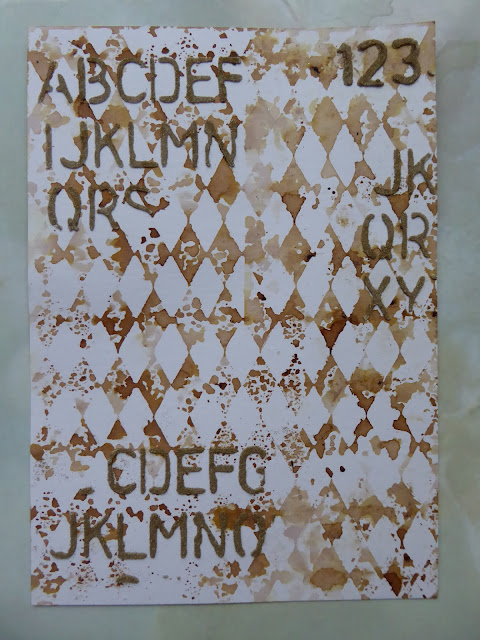 ABCDEF
123
IJKLMN
JK
QRS
QR
XY
CDEFG
JKLMNO